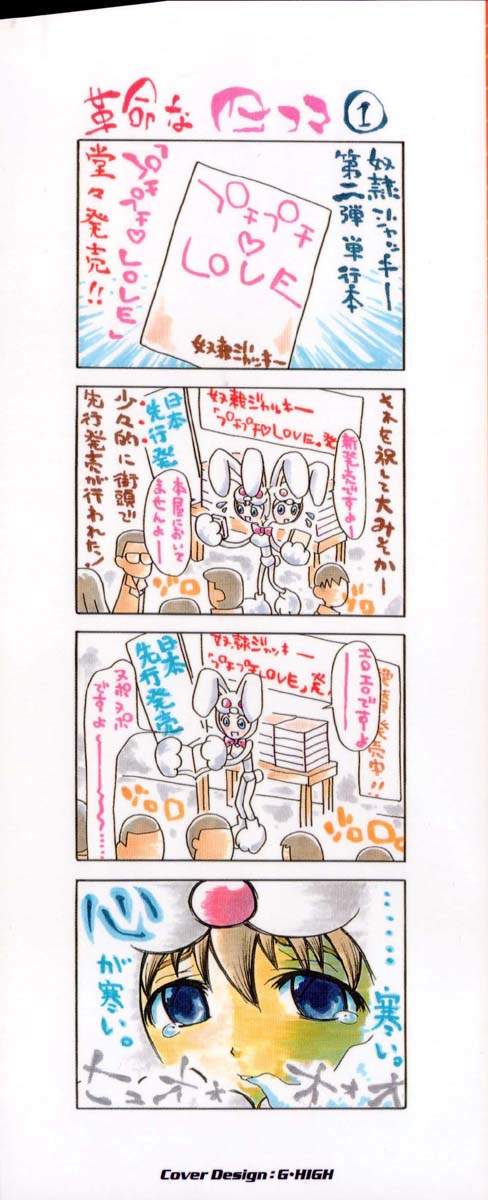 革命な
1
奴隷ジャッキー
第二弾単行本
プチプチ♡
LOVE
奴隷ジャッキー
「プチプチ♡LOVE」
堂々発売!!
それを祝して大みそか
奴隷ジャッキー
「プチプチ♡LOVE」発
新発売ですよー
日本
先行発
本屋において
ませんよー
ゾロ
ゾロ
少々的に街頭で
先行発売が行われた!
発売中!!
エロエロですよ
奴隷ジャッキー
「プチプチLOVE」発
日本
先行発売
スポスポ
ですよ
ゾロ
ゾロ
……寒い。
心
が寒い。
Cover Design : G・HIGH